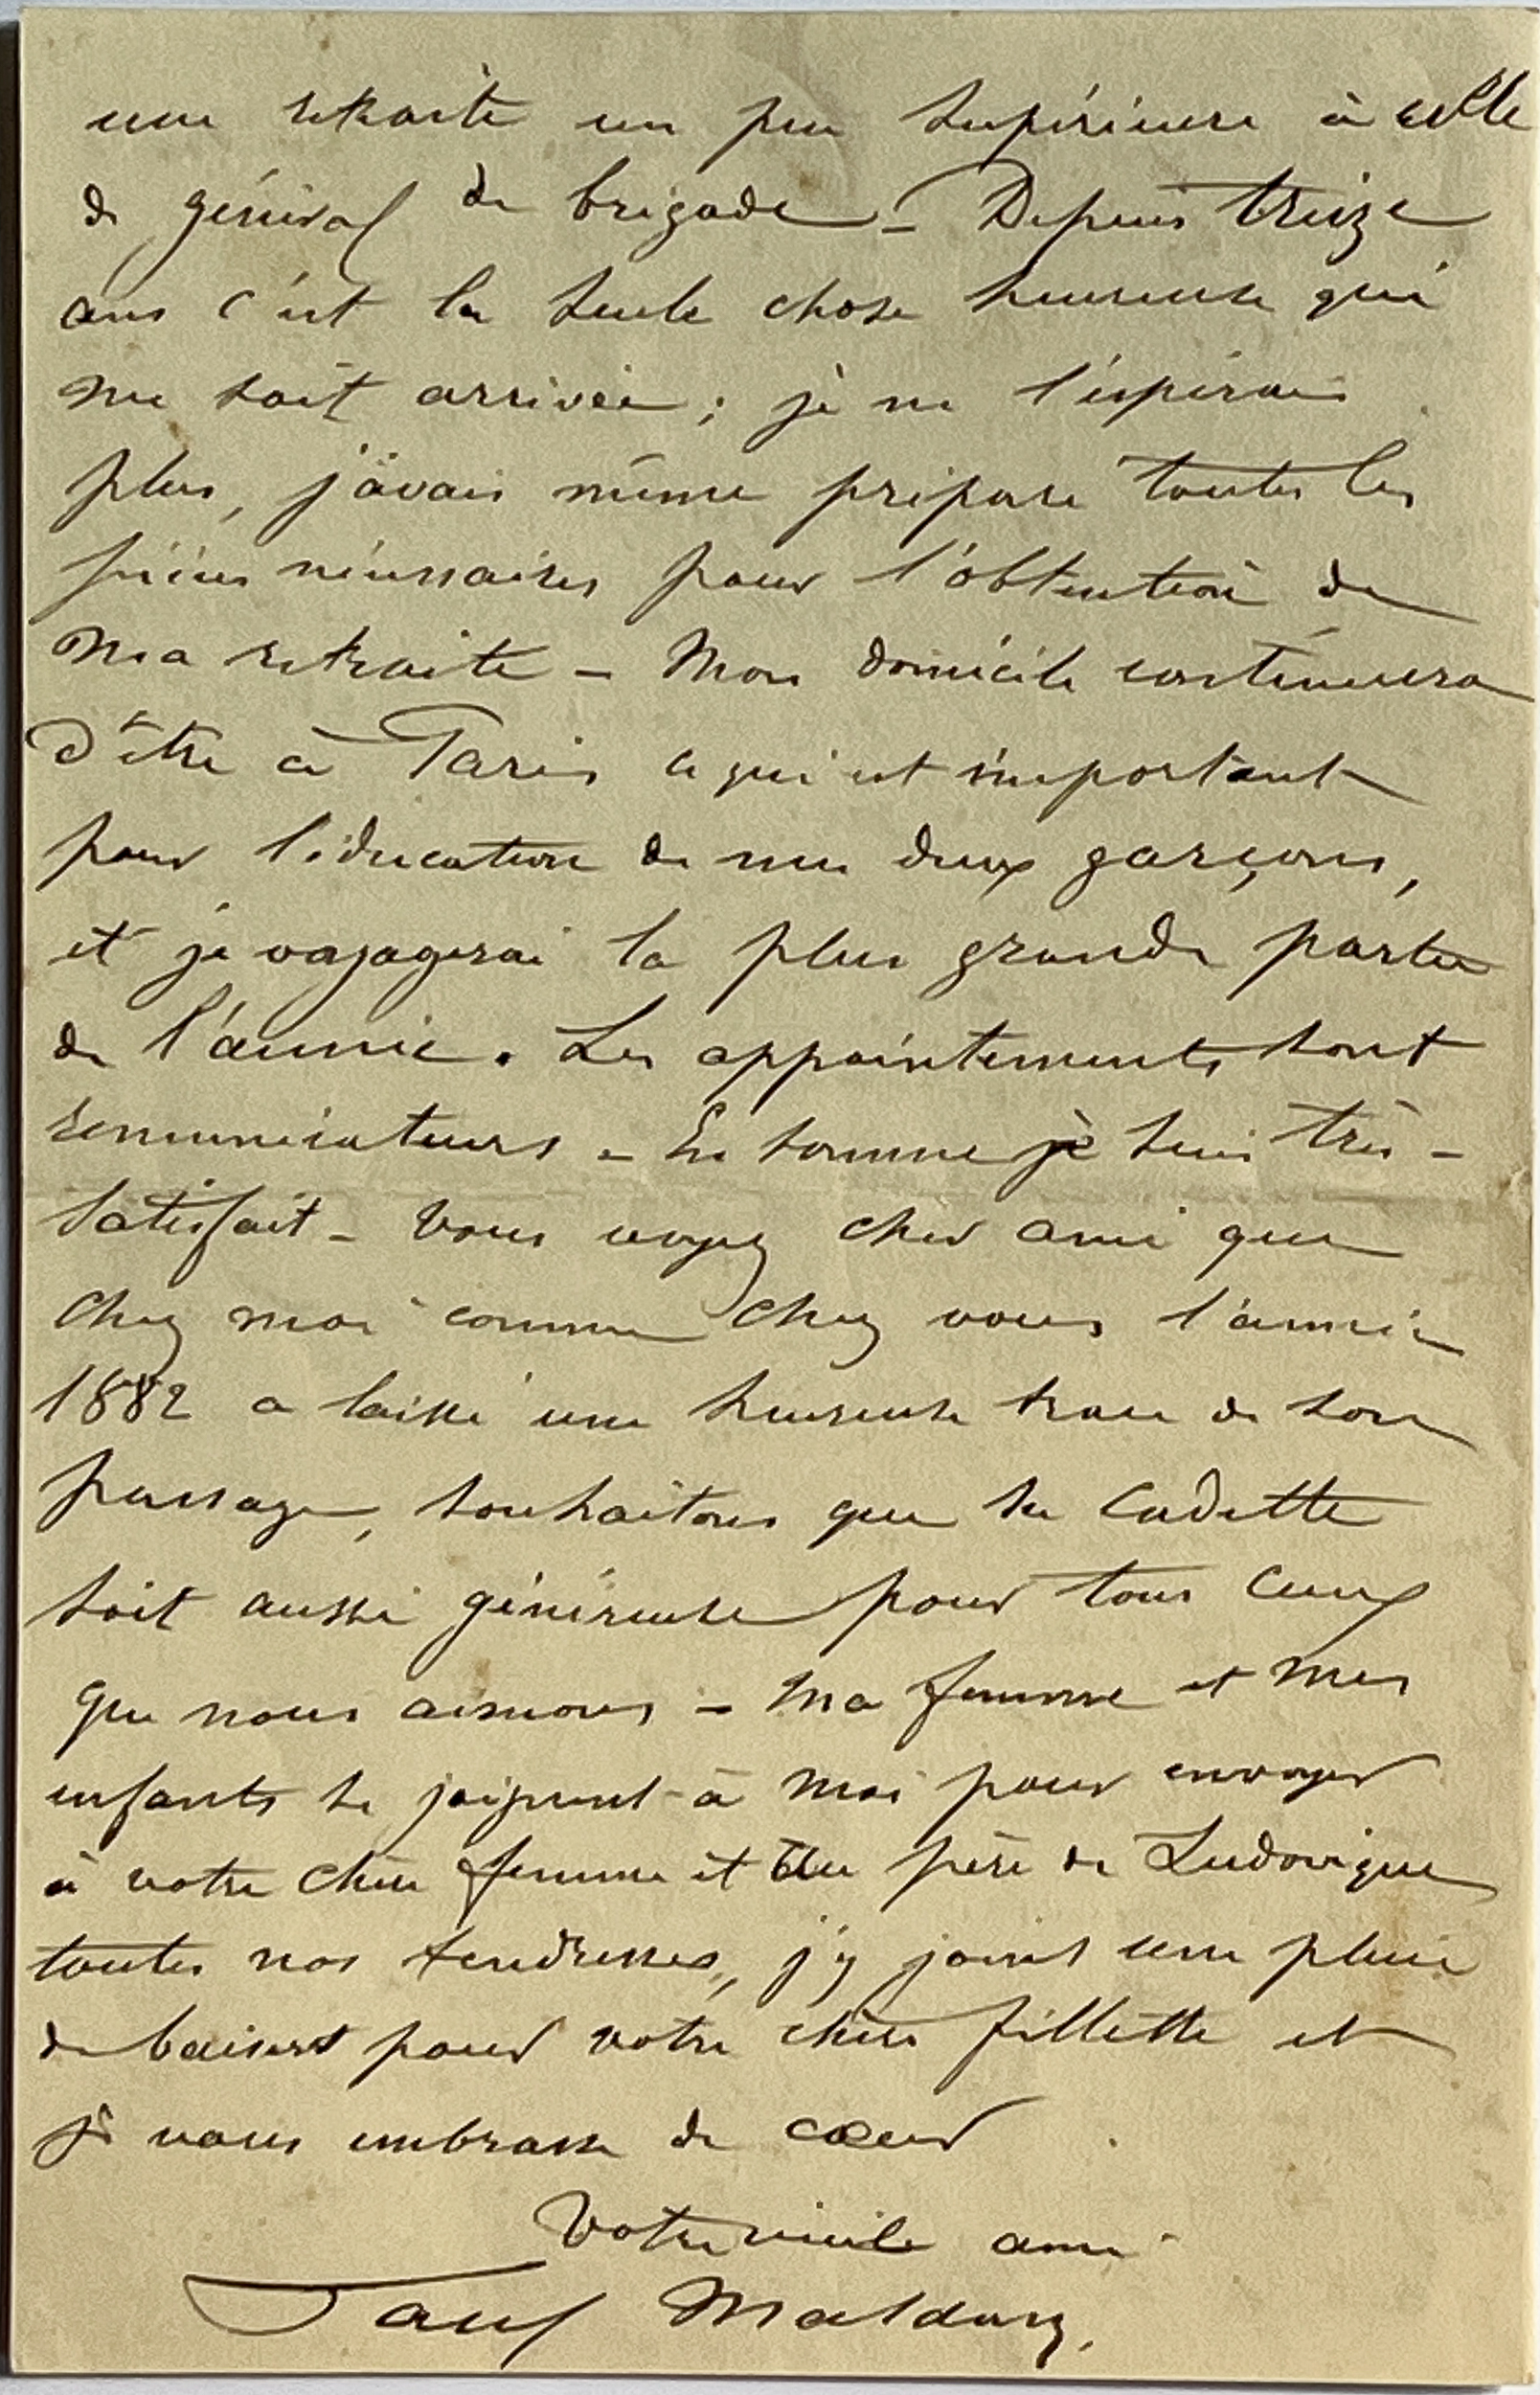 une retraite un peu supérieure à celle
de général de brigade – Depuis treize
ans c'est la seule chose heureuse qui
me soit arrivée ; je ne l'espérais
plus, j'avais même préparé toutes les
pièces nécessaires pour l'obtention de
ma retraite – Mon domicile continuera
d'être à Paris ce qui est important
pour l'éducation de mes deux garçons,
et je voyagerai la plus grande partie
de l'année. Les appointements sont
rémunérateurs – En somme je suis très –
satisfait – Vous voyez cher ami que
chez moi comme chez vous l'année
1882 a laissé une heureuse trace de son
passage, souhaitons que sa cadette
soit aussi généreuse pour tous ceux
que nous aimons – Ma femme et mes
enfants se joignent à moi pour envoyer
à votre chère femme et au père de Ludovique
toutes nos tendresses, j'y joins une pluie
de baisers pour votre chère fillette et
je vous embrasse de cœur
Votre vieil ami
Paul